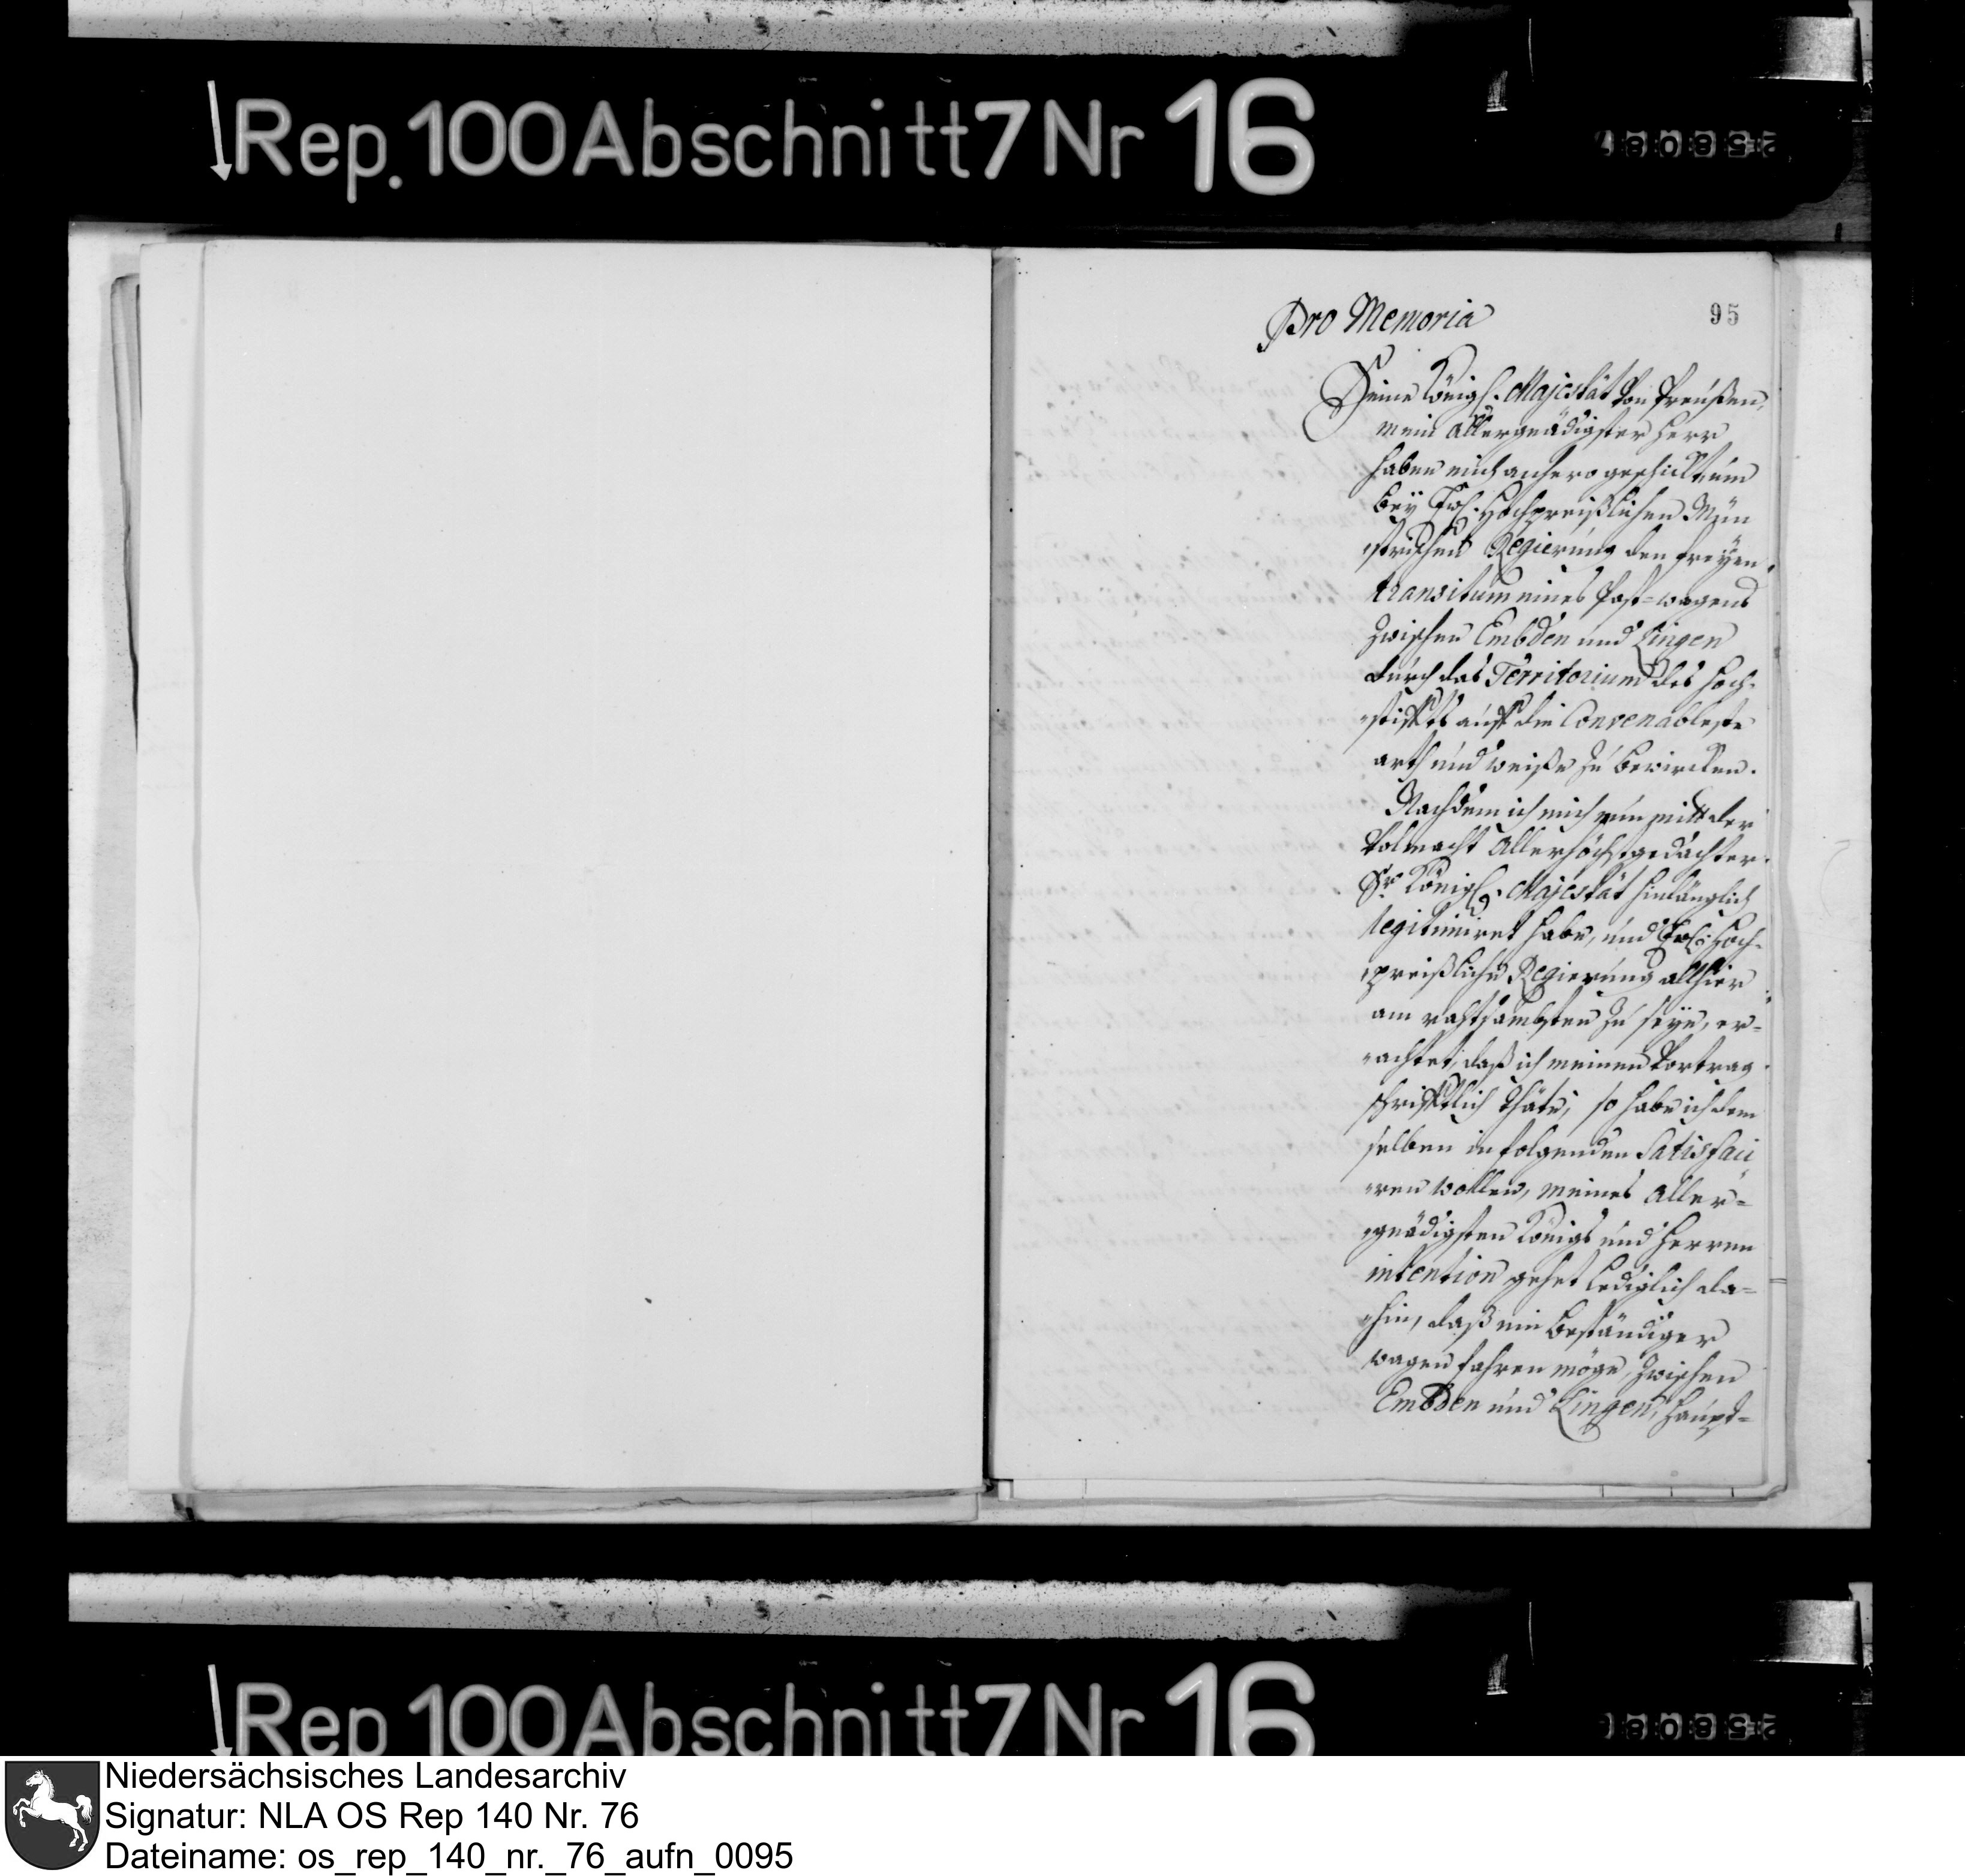 Rep. 100 Abschnitt 7 Nr 16
95
Pro Memoria
Seine Königl. Majestät von Preußen,
mein allergnädigster Herr
haben mich anhero geschickt, um
bey Hochpreißlichen Mün
sterischen Regierung den freyen
transitum eines Post=wagens
zwischen Embden und Lingen
durch das Territorium des Hoch-
stiffts auff die Convenableste
arth und weiße zu bewircken.
Nachdem ich mich nun mitt der
Volmacht Allerhöchstgedachter
Sr Königl. Majestät hinlänglich
legitimiret habe, und Hoch-
preißliche Regierung allhier
am rahtsambsten zu seyn, er=
achtet, daß ich meinen Vortrag
schrifftlich thäte, so habe ich dem
selben in folgenden Satisfaci
ren wollen, meines aller=
gnädigsten Königs und Herren
intention gehet lediglich da=
hin, daß ein beständiger
wagen fahren möge, zwischen
Embden und Lingen, haupt=
Rep 100 Abschnitt 7 Nr 16
Niedersächsisches Landesarchiv
Signatur: NLA OS Rep 140 Nr. 76
Dateiname: os_rep_140_nr._76_aufn_0095